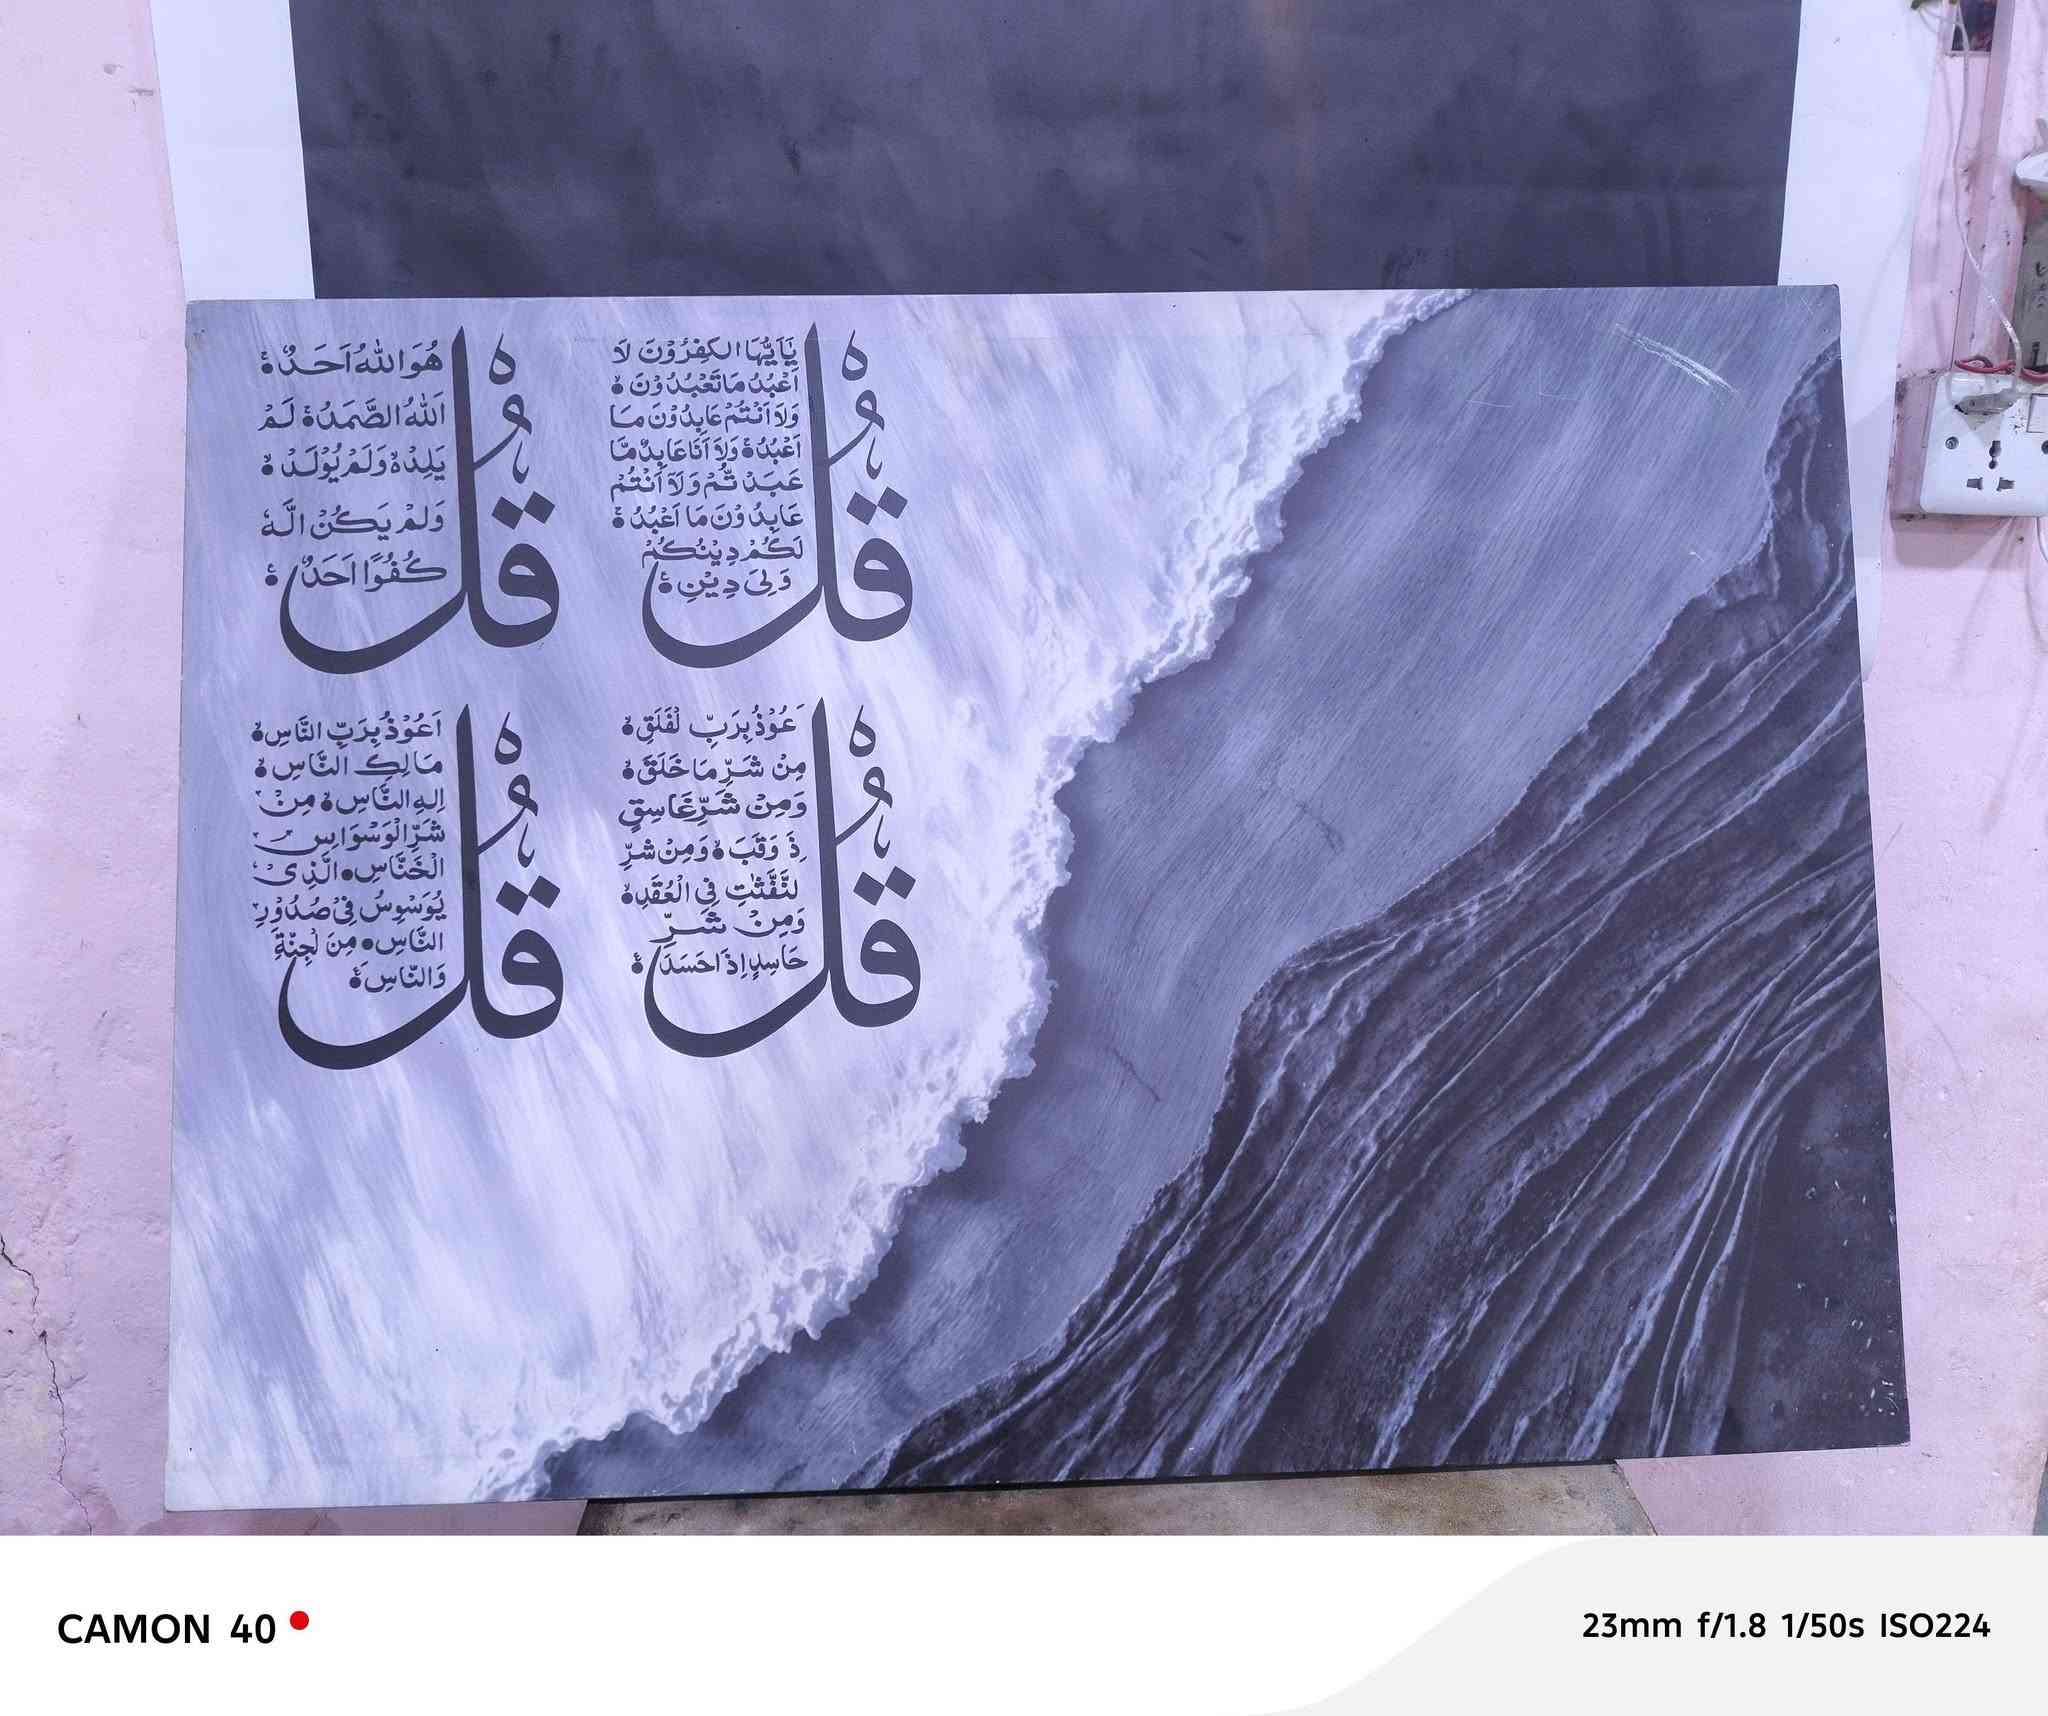 قُل
يَٰٓاَيُّهَا الكٰفِرُوْنَ لَا
اَعْبُدُ مَا تَعْبُدُوْنَ ۙ
وَلَا اَنْتُمْ عَابِدُوْنَ مَا
اَعْبُدُ ۚ وَلَا اَنَا عَابِدٌ مَّا
عَبَدْ تُّمْ وَلَآ اَنْتُمْ
عَابِدُوْنَ مَا اَعْبُدُ ۚ
لَكُمْ دِيْنُكُمْ
وَلِىَ دِيْنِ ۚ
قُل
هُوَ اللهُ اَحَدٌ ۚ
اَللهُ الصَّمَدُ ۚ لَمْ
يَلِدْ ۙ وَلَمْ يُوْلَدْ ۙ
وَلَمْ يَكُنْ الَّهٗ
كُفُوًا اَحَدٌ ۚ
قُل
َعُوْذُ بِرَبِّ لْفَلَقِ ۙ
مِنْ شَرِّ مَا خَلَقَ ۙ
وَمِنْ شَرِّ غَاسِقٍ
ِذَ وَقَبَ ۙ وَمِنْ شَرِّ
لنَّفّٰثٰتِ فِى الْعُقَدِ ۙ
وَمِنْ شَرِّ
حَاسِدٍ اِذَ احَسَدَ ۚ
قُل
اَعُوْذُ بِرَبِّ النَّاسِ ۙ
مَالِكِ النَّاسِ ۙ
اِلهِ النَّاسِ ۙ مِنْ
شَرِّ الْوَسْوَاسِ
الْخَنَّاسِ • الَّذِىْ
يُوَسْوِسُ فِىْ صُدُوْرِ
النَّاسِ • مِنَ لْجِنَّةِ
وَالنَّاسِ ۚ
CAMON 40
23mm f/1.8 1/50s ISO224